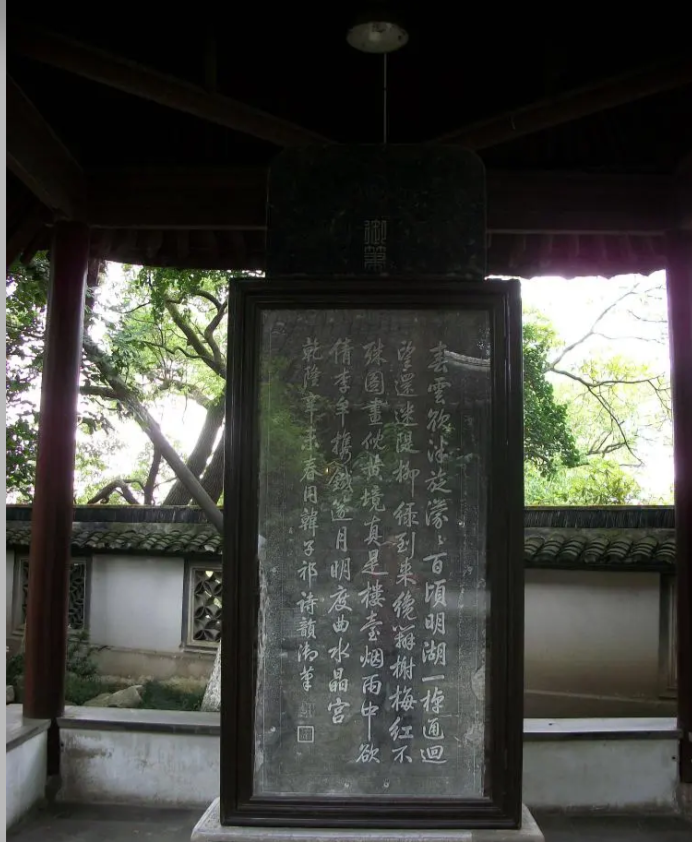 御筆
春雲欲泮旋濛〻百頃明湖一棹通迴
望還迷隄柳綠到來纔辨榭梅紅不
殊圖畫倪黃境真是樓臺烟雨中欲
倩李牟攜鐵篴月明度曲水晶宮
乾隆辛未春用韓子祁詩韻御筆